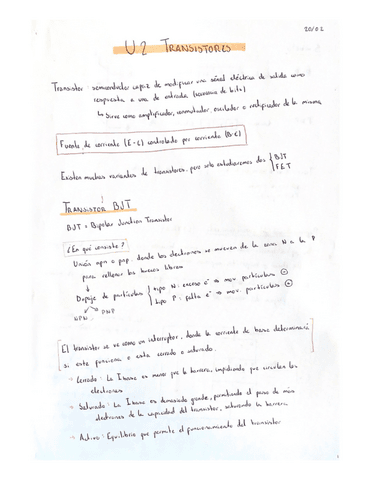 20/02
U2 TRANSISTORES
Transistor semiconductor capaz de modificar una señal eléctrica de salida como
respuesta a una de entrada (corriente de
↳ Sirve como amplificador, conmutador, oscilador o rectificador de la misma
Fuente de corriente (E-C) controlada por corriente (B-E)
Existen muchas variantes de transistores, pero solo estudiaremos dos { BJT
FET
TRANSISTOR BJT
BJT = Bipolar Junction Transistor
¿En qué consiste?
Unión npn o pnp, donde los electrones se mueven de la zona N a la P
para rellenar los huecos libres
de partículas { tipo N: exceso e⁻ → mov. partículas ⊖
tipo P: falta e⁻ → mov. partículas ⊕
NPN PNP
El transistor se ve como un interruptor, donde la corriente de base determinará
si este funciona o está cerrado o saturado.
- Cerrado: La I base es menor que la barrera, impidiendo que circulen los
electrones
- Saturado: La I base es demasiado grande, permitiendo el paso de más
electrones de la capacidad del transistor, saturando la barrera
- Activo: Equilibrio que permite el funcionamiento del transistor